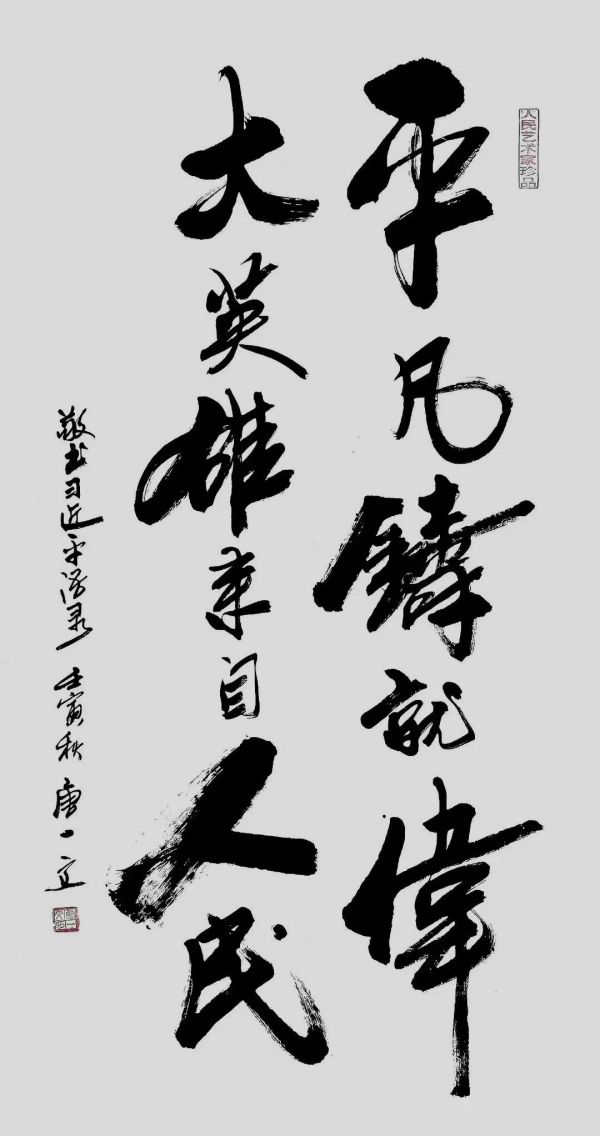 人民艺术家珍品
平凡鑄就偉
大英雄来自人民
敬书习近平语录 壬寅秋 唐一立